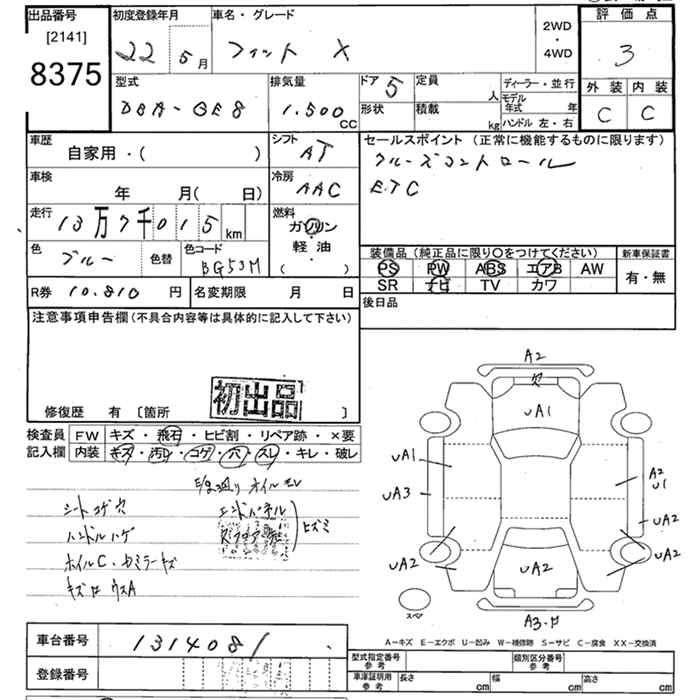 出品番号 初度登録年月 車名・グレード 評価点
[2141] 2WD
8375 22 5 月 フィット X ・ 4WD 3
型式 排気量 ドア 5 定員 人 ディーラー・並行 外装 内装
DBA-GE8 1.500 CC 形状 積載 kg モデル年式 年 C C
ハンドル 左・右
車歴 シフト セールスポイント (正常に機能するものに限ります)
自家用・( ) AT クルーズコントロール
車検 冷房 ETC
年 月( 日) AAC
走行 13万7千015 km 燃料 ガソリン
軽油
( )
色 ブルー 色替 色コード BG53M
装備品 (純正品に限り○をつけてください) 新車保証書
PS PW ABS エアB AW 有・無
SR ナビ TV カワ
R券 10.810 円 名変期限 月 日 後日品
注意事項申告欄 (不具合内容等は具体的に記入して下さい)
初出品
修復歴 有 [箇所 ]
検査員 FW キズ・飛石・ヒビ割・リペア跡・×要
記入欄 内装 キズ・汚レ・コゲ・穴・スレ・キレ・破レ
オイルモレ
シートコゲ穴 エンドパネル
ハンドルハゲ ヒズミ
ホイルC
A2
欠
UA1
UA1 A2
U1
UA3 UA2
UA2 UA2 UA2
スペア A3
A-キズ E-エクボ U-凹み W-補修跡 S-サビ C-腐食 XX-交換済
車台番号 1314081 型式指定番号 参考 類別区分番号 参考
登録番号 車庫証明用 参考 長さ cm 幅 cm 高さ cm